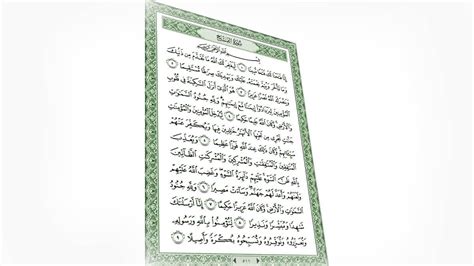 سُورَةُ الفَتْحِ
بِسْمِ ٱللَّهِ ٱلرَّحْمَٰنِ ٱلرَّحِيمِ
إِنَّا فَتَحْنَا لَكَ فَتْحًا مُّبِينًا ١ لِّيَغْفِرَ لَكَ ٱللَّهُ مَا تَقَدَّمَ مِن ذَنۢبِكَ
وَمَا تَأَخَّرَ وَيُتِمَّ نِعْمَتَهُۥ عَلَيْكَ وَيَهْدِيَكَ صِرَٰطًا مُّسْتَقِيمًا ٢
وَيَنصُرَكَ ٱللَّهُ نَصْرًا عَزِيزًا ٣ هُوَ ٱلَّذِيٓ أَنزَلَ ٱلسَّكِينَةَ فِي قُلُوبِ
ٱلْمُؤْمِنِينَ لِيَزْدَادُوٓا۟ إِيمَٰنًا مَّعَ إِيمَٰنِهِمْ وَلِلَّهِ جُنُودُ ٱلسَّمَٰوَٰتِ
وَٱلْأَرْضِ وَكَانَ ٱللَّهُ عَلِيمًا حَكِيمًا ٤ لِّيُدْخِلَ ٱلْمُؤْمِنِينَ وَٱلْمُؤْمِنَٰتِ
جَنَّٰتٍ تَجْرِي مِن تَحْتِهَا ٱلْأَنْهَٰرُ خَٰلِدِينَ فِيهَا وَيُكَفِّرَ عَنْهُمْ
سَيِّـَٔاتِهِمْ وَكَانَ ذَٰلِكَ عِندَ ٱللَّهِ فَوْزًا عَظِيمًا ٥ وَيُعَذِّبَ
ٱلْمُنَٰفِقِينَ وَٱلْمُنَٰفِقَٰتِ وَٱلْمُشْرِكِينَ وَٱلْمُشْرِكَٰتِ ٱلظَّآنِّينَ
بِٱللَّهِ ظَنَّ ٱلسَّوْءِ عَلَيْهِمْ دَآئِرَةُ ٱلسَّوْءِ وَغَضِبَ ٱللَّهُ عَلَيْهِمْ
وَلَعَنَهُمْ وَأَعَدَّ لَهُمْ جَهَنَّمَ وَسَآءَتْ مَصِيرًا ٦ وَلِلَّهِ جُنُودُ
ٱلسَّمَٰوَٰتِ وَٱلْأَرْضِ وَكَانَ ٱللَّهُ عَزِيزًا حَكِيمًا ٧ إِنَّآ أَرْسَلْنَٰكَ
شَٰهِدًا وَمُبَشِّرًا وَنَذِيرًا ٨ لِّتُؤْمِنُوا۟ بِٱللَّهِ وَرَسُولِهِۦ
وَتُعَزِّرُوهُ وَتُوَقِّرُوهُ وَتُسَبِّحُوهُ بُكْرَةً وَأَصِيلًا ٩
٥١١